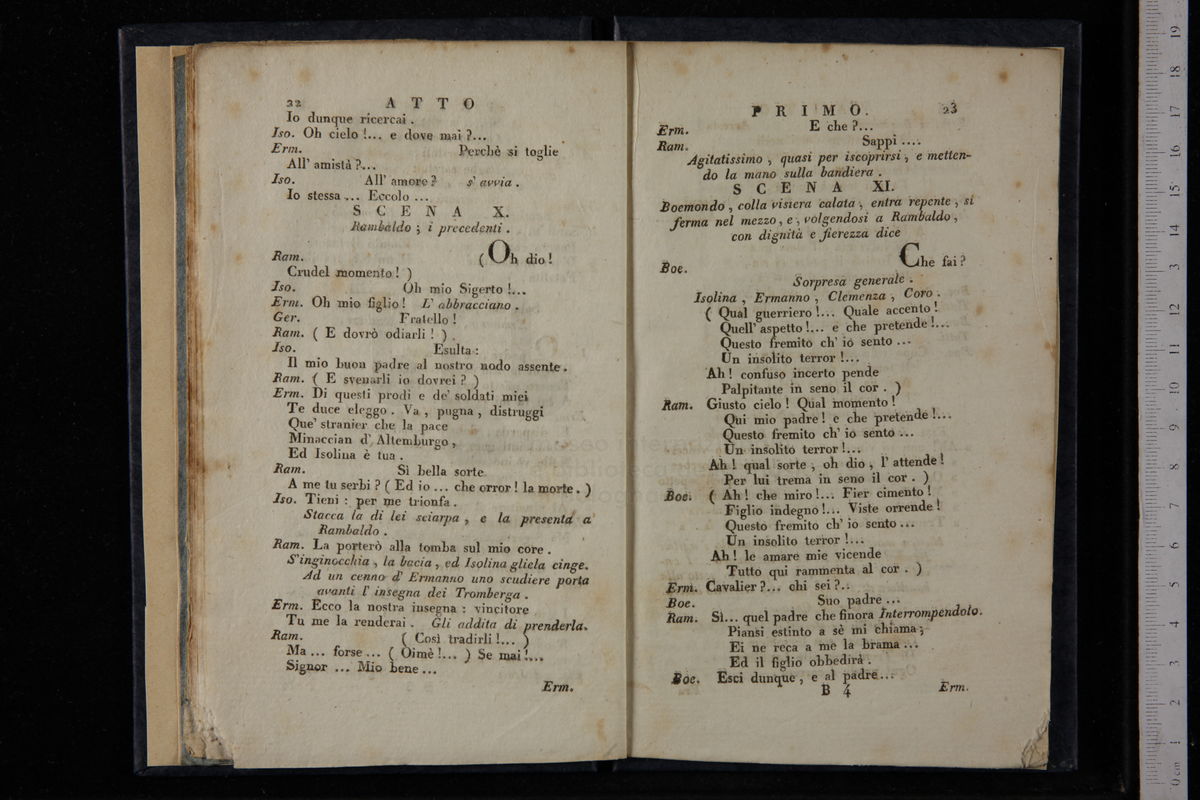 22 ATTO
Io dunque ricercai .
Iso. Oh cielo !... e dove mai ?...
Erm. Perchè si toglie
All' amistà ?...
Iso. All' amore ? s' avvia .
Io stessa ... Eccolo ...
SCENA X.
Rambaldo ; i precedenti .
Ram. ( Oh dio !
Crudel momento ! )
Iso. Oh mio Sigerto !...
Erm. Oh mio figlio ! E' abbracciano .
Ger. Fratello !
Ram. ( E dovrò odiarli ! ) .
Iso. Esulta :
Il mio buon padre al nostro nodo assente .
Ram. ( E svenarli io dovrei ? )
Erm. Di questi prodi e de' soldati miei
Te duce eleggo . Va , pugna , distruggi
Que' stranier che la pace
Minaccian d' Altemburgo ,
Ed Isolina è tua .
Ram. Sì bella sorte
A me tu serbi ? ( Ed io ... che orror ! la morte . )
Iso. Tieni : per me trionfa .
Stacca la di lei sciarpa , e la presenta a
Rambaldo .
Ram. La porterò alla tomba sul mio core .
S'inginocchia , la bacia , ed Isolina gliela cinge.
Ad un cenno d' Ermanno uno scudiere porta
avanti l' insegna dei Tromberga .
Erm. Ecco la nostra insegna : vincitore
Tu me la renderai . Gli addita di prenderla.
Ram. ( Così tradirli !... )
Ma ... forse ... ( Oimè !... ) Se mai !...
Signor ... Mio bene ...
Erm.
PRIMO. 23
Erm. E che ?...
Ram. Sappi ....
Agitatissimo , quasi per iscoprirsi , e metten-
do la mano sulla bandiera .
SCENA XI.
Boemondo , colla visiera calata , entra repente , si
ferma nel mezzo , e , volgendosi a Rambaldo ,
con dignità e fierezza dice
Boe. Che fai ?
Sorpresa generale .
Isolina , Ermanno , Clemenza , Coro .
( Qual guerriero !... Quale accento !
Quell' aspetto !... e che pretende !...
Questo fremito ch' io sento ...
Un insolito terror !...
Ah ! confuso incerto pende
Palpitante in seno il cor . )
Ram. Giusto cielo ! Qual momento !
Qui mio padre ! e che pretende !...
Questo fremito ch' io sento ...
Un insolito terror !...
Ah ! qual sorte , oh dio , l' attende !
Per lui trema in seno il cor . )
Boe. ( Ah ! che miro !... Fier cimento !
Figlio indegno !... Viste orrende !
Questo fremito ch' io sento ...
Un insolito terror !...
Ah ! le amare mie vicende
Tutto qui rammenta al cor . )
Erm. Cavalier ?... chi sei ?..
Boe. Suo padre ...
Ram. Sì... quel padre che finora Interrompendolo.
Piansi estinto a sè mi chiama ;
Ei ne reca a me la brama ...
Ed il figlio obbedirà .
Boe. Esci dunque , e al padre ...
B 4 Erm.